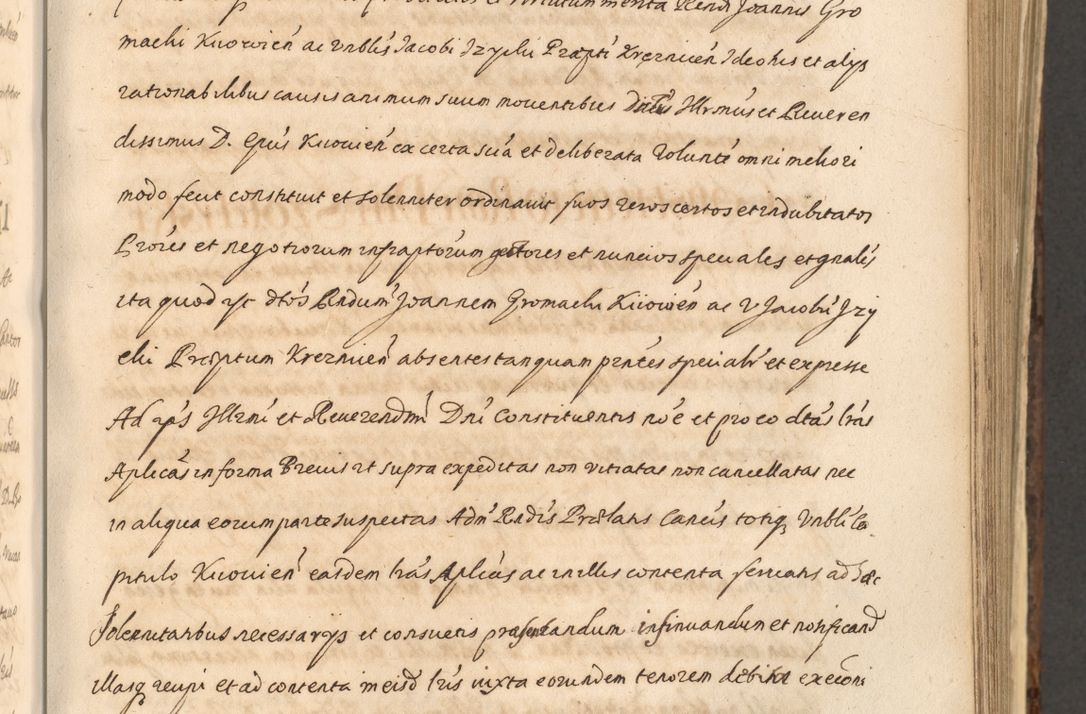 menta Rendi Joannis Gro
machi Kiiowien ac Vnblis Jacobi Jzychi Præpti Krezniceń Ideo his et alijs
rationabilibus causis animum suum mouentibus Illrmus et Reueren
dissimus D. Epus Kiiouień ex certa scia et deliberata Volunte omni meliori
modo fecit constituit et solenniter ordinauit suos veros certos et indubitatos
Prores et negotiorum infraptorum gestores et nuncios speciales et gnales
ita quod dtos Rndum Joannem Gromachi Kiiowień ac V Jacobu Jzy
chi Præptum Krezniceń absentes tanquam pntes specialr et expresse
Ad ips Illrmi et Reuerendmi Dni Constituentis noe et pro eo dtas lras
Aplicas in forma Breuis ut supra expeditas non vitiatas non cancellatas nec
in aliqua eorum parte suspectas Adm Rndis Prælatis Cancis totiq Vnbli Ca
pitulo Kiiouień easdem lras Aplicas ac in illis contenta seruatis ad hæc
solennitatibus necessarijs et consuetis præsentandum insinuandum et notificand
illasq recipi et ad contenta in eisd lris iuxta eorundem tenorem debitæ exeoni